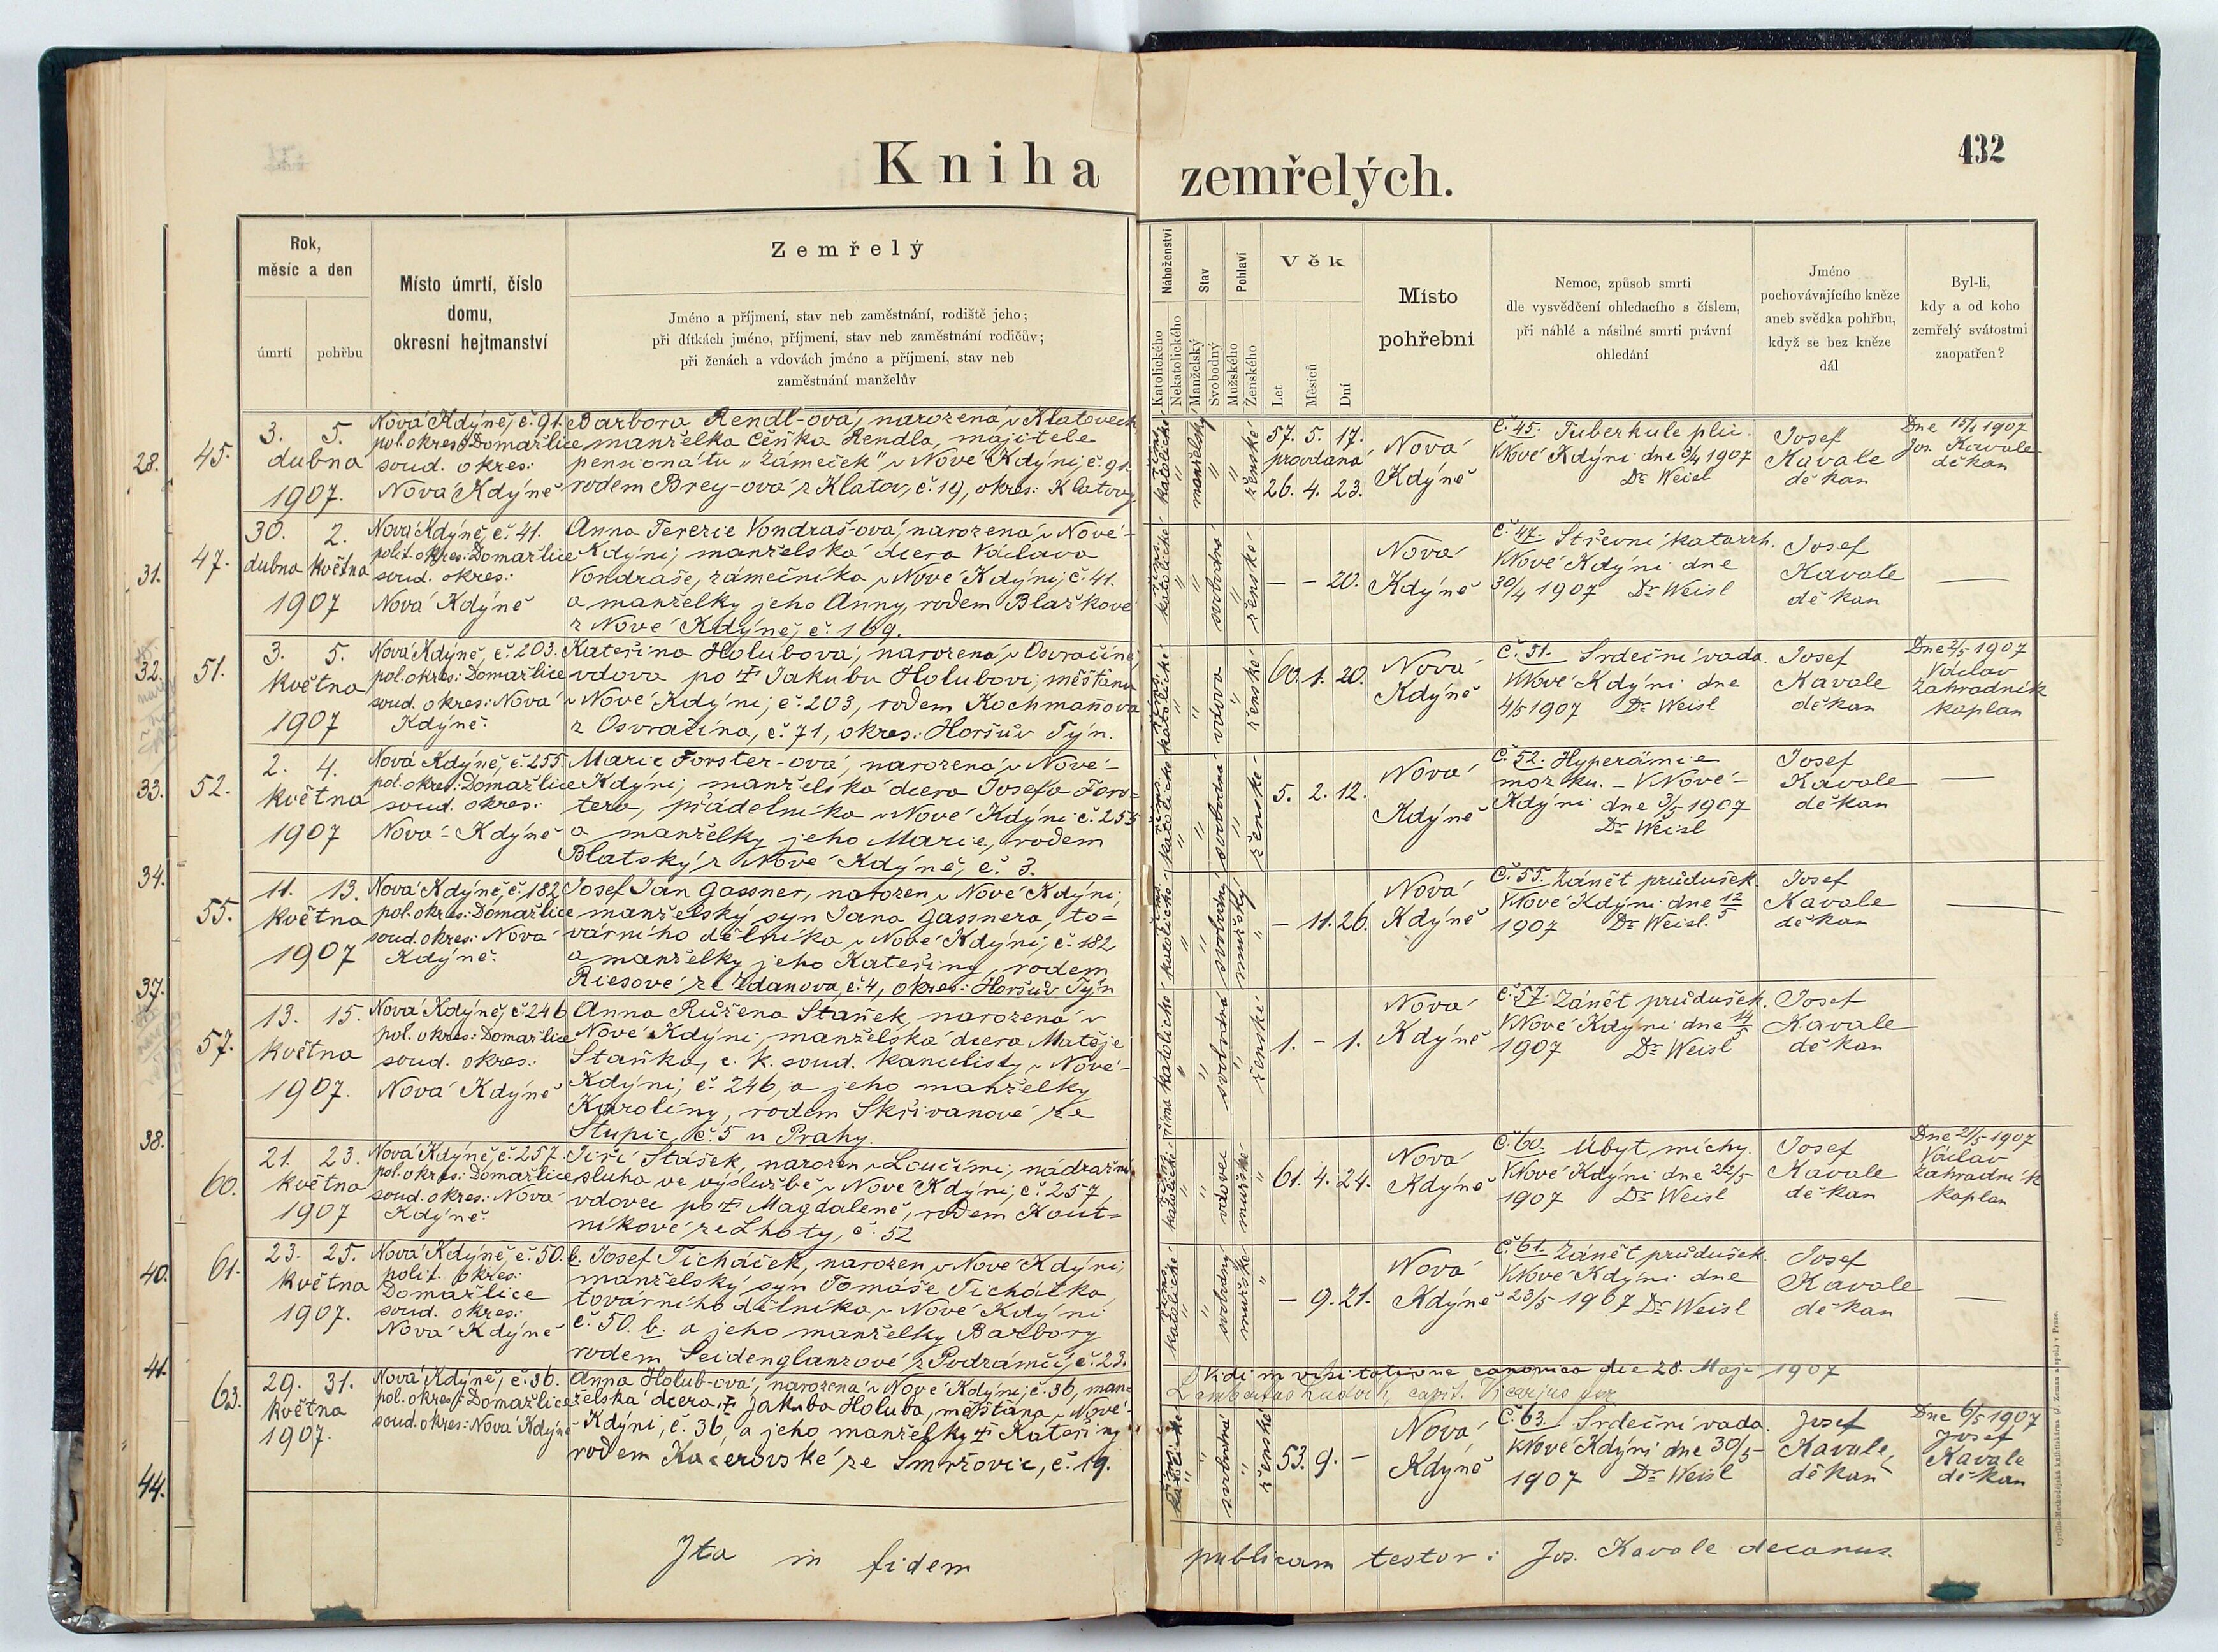 Kniha zemřelých.
432
Rok,
měsíc a den
úmrtí
pohřbu
Místo úmrtí, číslo
domu,
okresní hejtmanství
Zemřelý
Jméno a příjmení, stav neb zaměstnání, rodiště jeho;
při dítkách jméno, příjmení, stav neb zaměstnání rodičův;
při ženách a vdovách jméno a příjmení, stav neb
zaměstnání manželův
Náboženství
Katolického
Nekatolického
Stav
Manželský
Svobodný
Pohlaví
Mužského
Ženského
Věk
Let
Měsíců
Dní
Místo
pohřební
Nemoc, způsob smrti
dle vysvědčení ohledacího s číslem,
při náhlé a násilné smrti právní
ohledání
Jméno
pochovávajícího kněze
aneb svědka pohřbu,
když se bez kněze
dál
Byl-li,
kdy a od koho
zemřelý svátostmi
zaopatřen?
28.
45.
3. 5.
dubna
1907.
Nová Kdýně, č. 91.
pol. okres: Domažlice
soud. okres:
Nová Kdýně
Barbora Rendl-ová, narozená v Klatovech
manželka Čeňka Rendla, majitele
pensionátu „Zámeček" v Nové Kdýni, č. 91.
rodem Brey-ová z Klatov, č. 19, okres: Klatovy
řím. katolické
manželský
ženské
57. 5. 17.
provdaná
26. 4. 23.
Nová
Kdýně
Č. 45. Tuberkule plic.
V Nové Kdýni dne 3/4 1907
Dr Weisl
Josef
Kavale
děkan
Dne 1907
Jos. Kavale
děkan
31.
47.
30. 2.
dubna května
1907
Nová Kdýně, č. 41.
polit. okres: Domažlice
soud. okres:
Nová Kdýně
Anna Terezie Vondraš-ová, narozená v Nové-
Kdýni, manželská dcera Václava
Vondraše, zámečníka v Nové Kdýni, č. 41.
a manželky jeho Anny, rodem Blažkové
z Nové Kdýně, č. 169.
řím. katolické
svobodná
ženské
— – 20.
Nová
Kdýně
Č. 47. Střevní katarrh.
V Nové Kdýni dne
30/4 1907 Dr Weisl
Josef
Kavale
děkan
—
32.
51.
3. 5.
května
1907
Nová Kdýně, č. 203.
pol. okres: Domažlice
soud. okres: Nová
Kdýně.
Kateřina Holubová, narozená v Osvračíně,
vdova po † Jakubu Holubovi, měšťanu
v Nové Kdýni, č. 203, rodem Kochmanová
z Osvračína, č. 71, okres: Horšův Týn.
řím. katolické
vdova
ženské
60. 1. 20.
Nová
Kdýně
Č. 51. Srdeční vada.
V Nové Kdýni dne
4/5 1907 Dr Weisl
Josef
Kavale
děkan
Dne 2/5 1907
Václav
Zahradník
kaplan
33.
52.
2. 4.
května
1907
Nová Kdýně, č. 255.
pol. okres: Domažlice
soud. okres:
Nová-Kdýně
Marie Forster-ová, narozená v Nové-
Kdýni, manželská dcera Josefa Fors=
tera, přádelníka v Nové Kdýni č. 255
a manželky jeho Marie, rodem
Blatský z Nové Kdýně, č. 3.
řím. katolické
svobodná
ženské
5. 2. 12.
Nová
Kdýně
Č. 52. Hyperämie
mozku. – V Nové-
Kdýni dne 3/5 1907
Dr Weisl
Josef
Kavale
děkan
—
34.
55.
11. 13.
května
1907
Nová Kdýně, č. 182
pol. okres: Domažlice
soud. okres: Nová
Kdýně.
Josef Jan Gassner, narozen v Nové Kdýni,
manželský syn Jana Gassnera, to=
várního dělníka v Nové Kdýni, č. 182
a manželky jeho Kateřiny, rodem
Riesové ze Ždanova, č. 4, okres: Horšův Týn
řím. katolické
svobodný
mužský
– 11. 26.
Nová
Kdýně
Č. 55. Zánět průdušek.
V Nové Kdýni dne 12/5
1907 Dr Weisl.
Josef
Kavale
děkan
—
37.
57.
13. 15.
května
1907.
Nová Kdýně, č. 246
pol. okres: Domažlice
soud. okres:
Nová Kdýně
Anna Růžena Staněk, narozená v
Nové Kdýni, manželská dcera Matěje
Staňka, c. k. soud. kancelisty v Nové-
Kdýni, č. 246, a jeho manželky
Karolíny, rodem Skřivanové ze
Stupic, č. 5 u Prahy.
řím. katolické
svobodná
ženské
1. – 1.
Nová
Kdýně
Č. 57. Zánět průdušek.
V Nové Kdýni dne 14/5
1907 Dr Weisl
Josef
Kavale
děkan
38.
60.
21. 23.
května
1907
Nová Kdýně č. 257.
pol. okres: Domažlice
soud. okres: Nová
Kdýně.
Jiří Stašek, narozen v Loučimi, nádražní
sluha ve výslužbě v Nové Kdýni, č. 257,
vdovec po † Magdaleně, rodem Kout=
níkové ze Lhoty, č. 52
řím. katolické
vdovec
mužské
61. 4. 24.
Nová
Kdýně
Č. 60. Úbyt míchy.
V Nové Kdýni dne 22/5
1907 Dr Weisl
Josef
Kavale
děkan
Dne 21/5 1907
Václav
Zahradník
kaplan
40.
61.
23. 25.
května
1907.
Nová Kdýně, č. 50. b.
polit. okres:
Domažlice
soud. okres:
Nová Kdýně
Josef Ticháček, narozen v Nové Kdýni,
manželský syn Tomáše Ticháčka,
továrního dělníka v Nové Kdýni
č. 50. b. a jeho manželky Barbory
rodem Seidenglanzové z Podzámčí, č. 23.
řím. katolické
svobodný
mužské
– 9. 21.
Nová
Kdýně
Č. 61. Zánět průdušek.
V Nové Kdýni dne
23/5 1907 Dr Weisl
Josef
Kavale
děkan
—
Vidi in visitatione canonica die 28. Maji 1907
41.
63.
29. 31.
května
1907.
Nová Kdýně, č. 36.
pol. okres: Domažlice
soud. okres: Nová Kdýně
Anna Holub-ová, narozená v Nové Kdýni, č. 36, man=
želská dcera † Jakuba Holuba, měšťana v Nové-
Kdýni, č. 36, a jeho manželky † Kateřiny
rodem Kacerovské ze Smržovic, č. 19.
řím. katolické
svobodná
ženské
53. 9. –
Nová
Kdyně
Č. 63. Srdeční vada.
V Nové Kdýni dne 30/5
1907 Dr Weisl
Josef
Kavale,
děkan
Dne 6/5 1907
Josef
Kavale
děkan
44.
Ita in fidem publicam testor: Jos. Kavale decanus.
Cyrillo-Methodějská knihtiskárna (J. Zeman a spol.) v Praze.